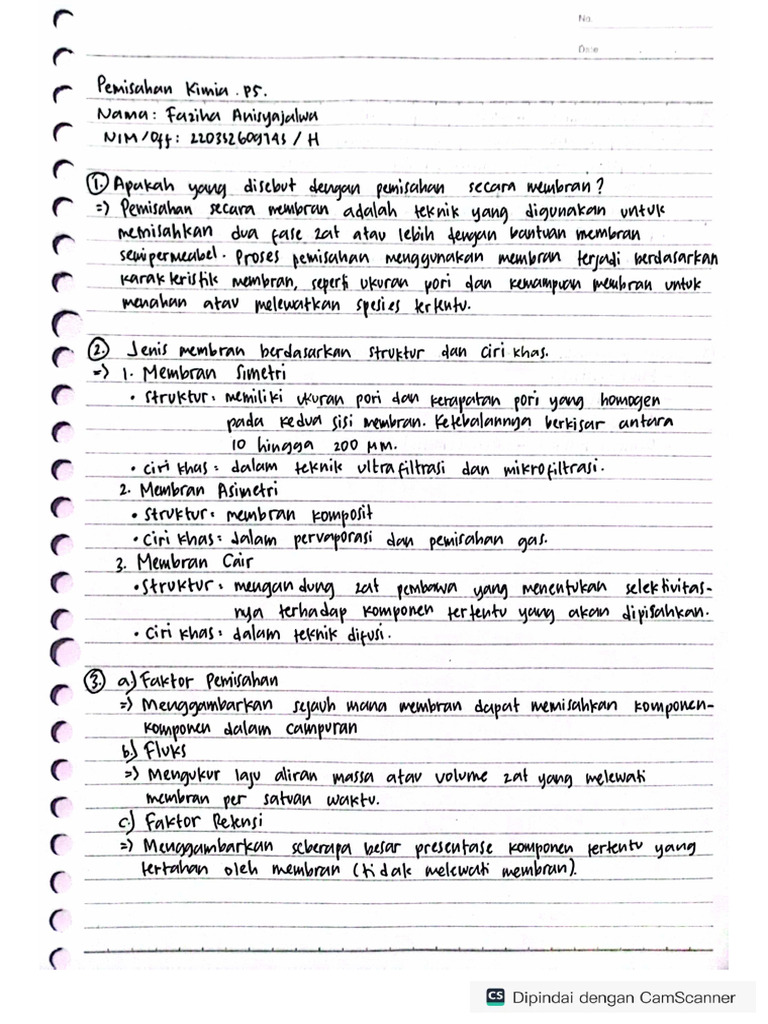 No.
Date
Pemisahan Kimia . P5.
Nama : Faziha Anisyajalwa
NIM/Off : 220332609143 / H
1. Apakah yang disebut dengan pemisahan secara membran?
=) Pemisahan secara membran adalah teknik yang digunakan untuk
memisahkan dua fase zat atau lebih dengan bantuan membran
semipermeabel. Proses pemisahan menggunakan membran terjadi berdasarkan
karakteristik membran, seperti ukuran pori dan kemampuan membran untuk
menahan atau melewatkan spesies tertentu.
2. Jenis membran berdasarkan struktur dan ciri khas.
=) 1. Membran Simetri
• Struktur : memiliki ukuran pori dan kerapatan pori yang homogen
pada kedua sisi membran. Ketebalannya berkisar antara
10 hingga 200 µm.
• Ciri khas : dalam teknik ultrafiltrasi dan mikrofiltrasi.
2. Membran Asimetri
• Struktur : membran komposit
• Ciri khas : dalam pervaporasi dan pemisahan gas.
3. Membran Cair
• Struktur : mengandung zat pembawa yang menentukan selektivitas-
nya terhadap komponen tertentu yang akan dipisahkan.
• Ciri khas : dalam teknik difusi.
3. a.) Faktor Pemisahan
=) Menggambarkan sejauh mana membran dapat memisahkan komponen-
komponen dalam campuran
b.) Fluks
=) Mengukur laju aliran massa atau volume zat yang melewati
membran per satuan waktu.
c.) Faktor Retensi
=) Menggambarkan seberapa besar presentase komponen tertentu yang
tertahan oleh membran (tidak melewati membran).
CS Dipindai dengan CamScanner